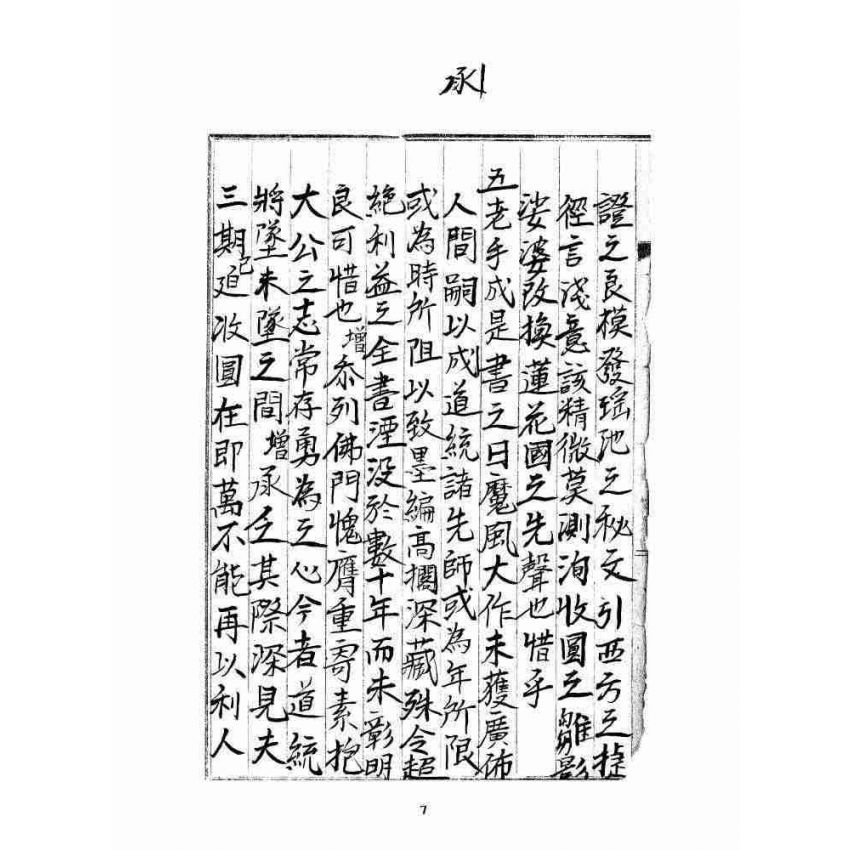 承
證之良模發瑤池之秘文引西方之捷
徑言淺意該精微莫測洵收圓之雛影
娑婆改換蓮花國之先聲也惜乎
五老手成是書之日魔風大作未獲廣佈
人間嗣以成道統諸先師或為年所限
或為時所阻以致墨編高擱深藏殊令超
絕利益之全書湮没於數十年而未彰明
良可惜也增忝列佛門愧膺重寄素抱
大公之志常存勇為之心今者道統
將墜未墜之間增承乏其際深見夫
三期已迫收圓在即萬不能再以利人
7